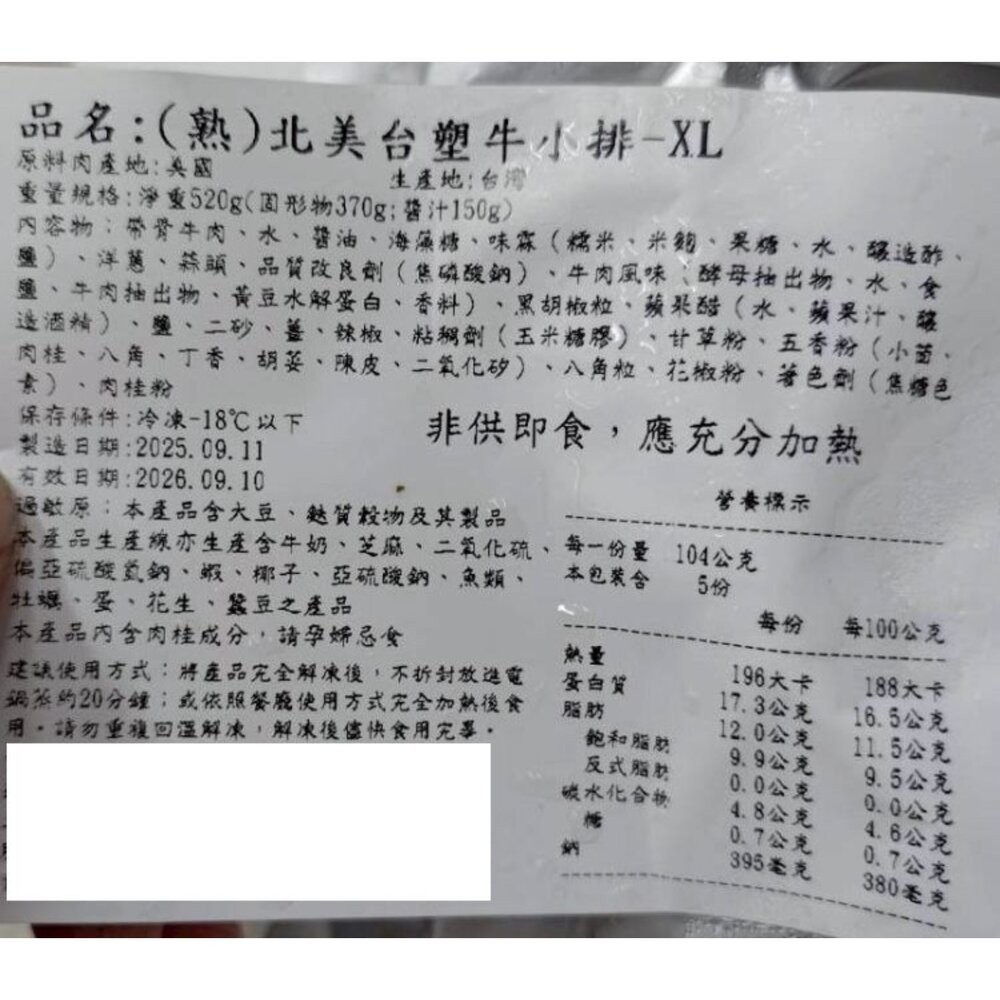 品名:(熟)北美台塑牛小排-XL
原料肉產地:美國 生產地:台灣
重量規格:淨重520g(固形物370g;醬汁150g)
內容物：帶骨牛肉、水、醬油、海藻糖、味霖（糯米、米麴、果糖、水、釀造酢、
鹽）、洋蔥、蒜頭、品質改良劑（焦磷酸鈉）、牛肉風味：酵母抽出物、水、食
鹽、牛肉抽出物、黃豆水解蛋白、香料）、黑胡椒粒、蘋果醋（水、蘋果汁、釀
造酒精）、鹽、二砂、薑、辣椒、粘稠劑（玉米糖膠）、甘草粉、五香粉（小茴、
肉桂、八角、丁香、胡荽、陳皮、二氧化矽）、八角粒、花椒粉、著色劑（焦糖色
素）、肉桂粉
保存條件:冷凍-18℃以下
製造日期:2025.09.11
有效日期:2026.09.10
非供即食，應充分加熱
過敏原：本產品含大豆、麩質穀物及其製品
本產品生產線亦生產含牛奶、芝麻、二氧化硫、
偏亞硫酸氫鈉、蝦、椰子、亞硫酸鈉、魚類、
牡蠣、蛋、花生、蠶豆之產品
本產品內含肉桂成分，請孕婦忌食
建議使用方式：將產品完全解凍後，不拆封放進電
鍋蒸約20分鐘；或依照餐廳使用方式完全加熱後食
用。請勿重複回溫解凍，解凍後儘快食用完畢。
營養標示
每一份量 104公克
本包裝含 5份
每份 每100公克
熱量 196大卡 188大卡
蛋白質 17.3公克 16.5公克
脂肪 12.0公克 11.5公克
飽和脂肪 9.9公克 9.5公克
反式脂肪 0.0公克 0.0公克
碳水化合物 4.8公克 4.6公克
糖 0.7公克 0.7公克
鈉 395毫克 380毫克